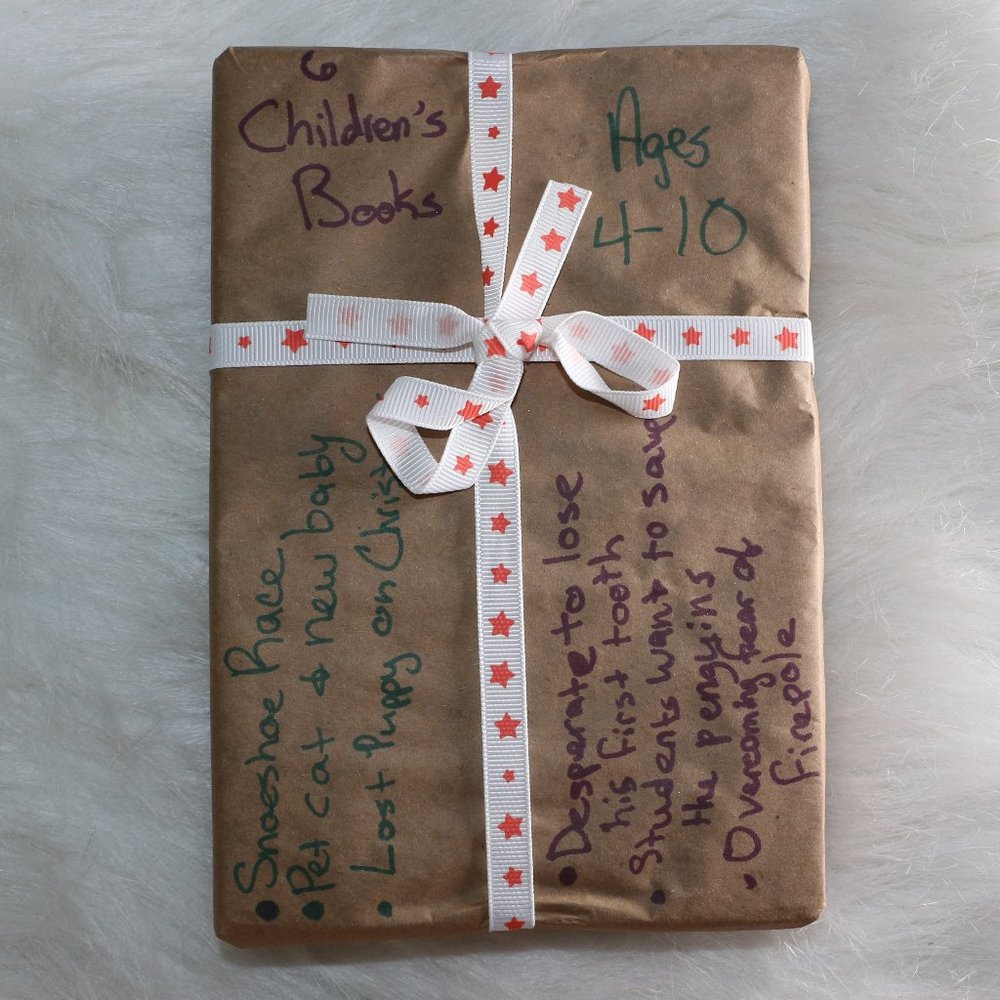 6
Children's
Books
Ages
4-10
• Snoeshoe Race
• Pet cat & new baby
• Lost Puppy on Christ
• Desperate to lose
his first tooth
• Students want to save
the pengyins
• Overcoming fear of
firepole